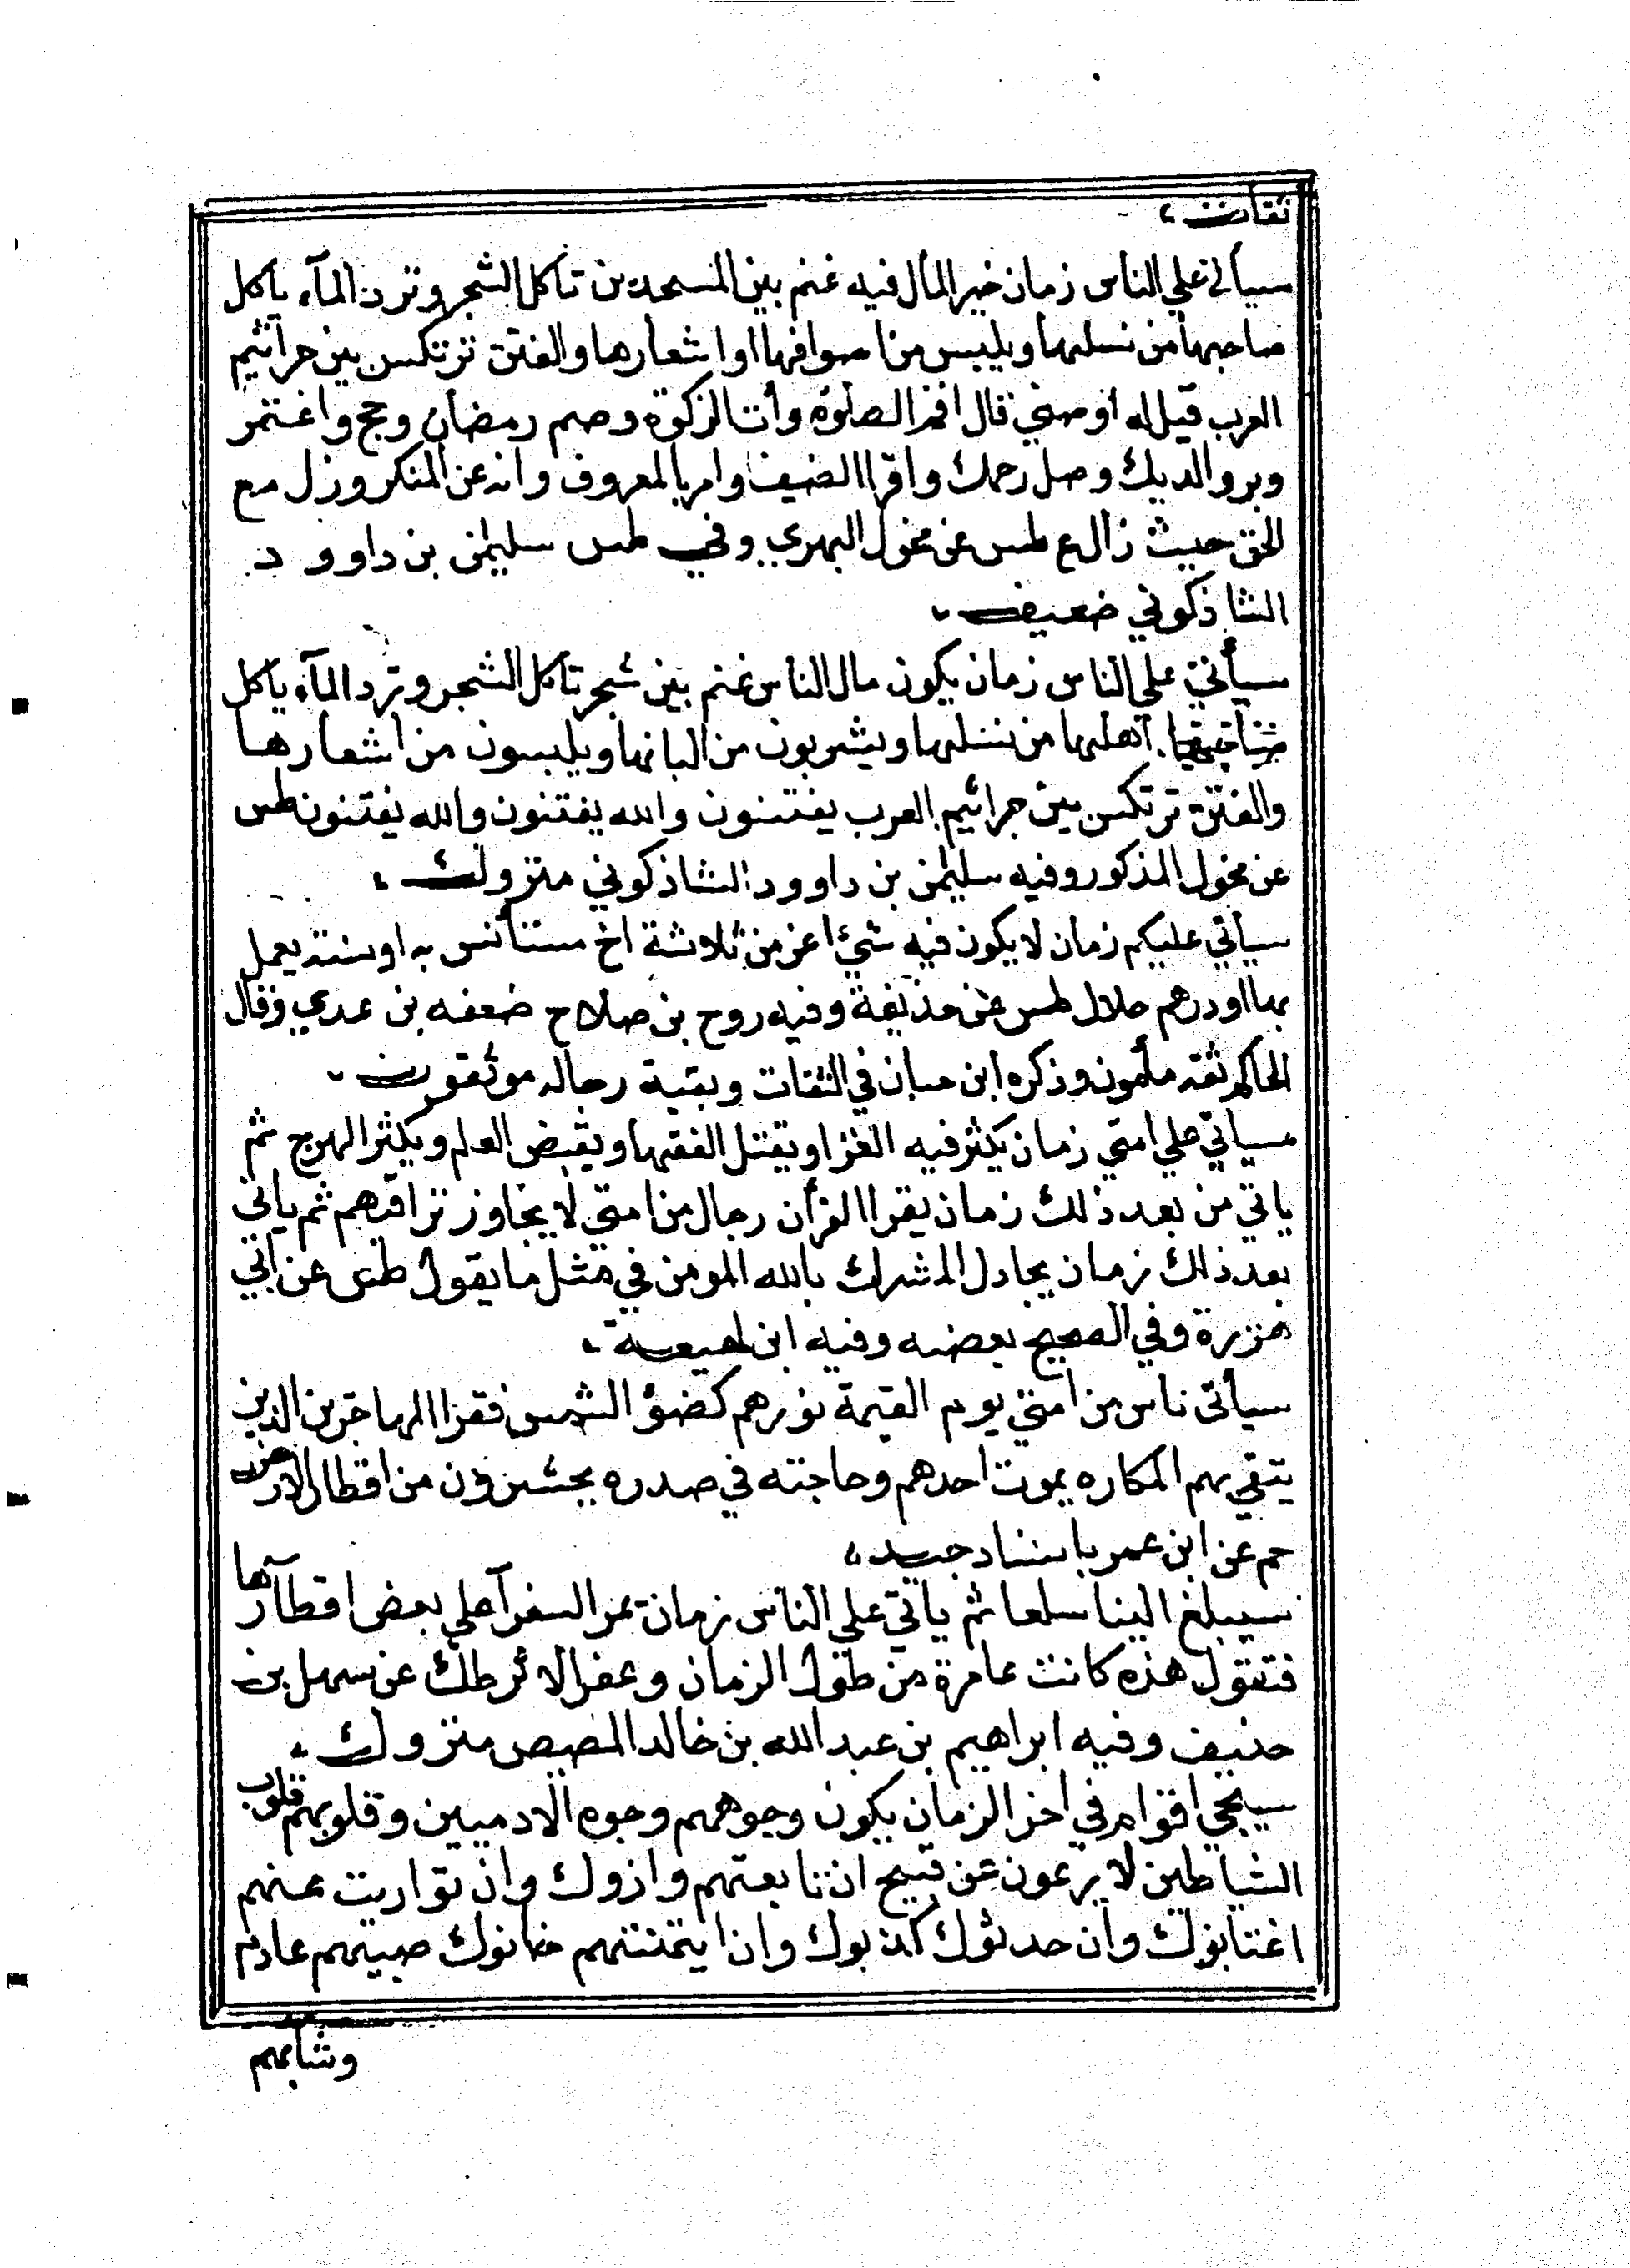 ثقات
سيأتي علي الناس زمان خير المال فيه غنم بين المسجدين تأكل الشجر وترد المآء ياكل
صاحبها من نسلها ويلبس من اصوافها او اشعارها والفتن ترتكس بين جراثيم
العرب قيل له اوصني قال اقم الصلوة وأت الزكوة وصم رمضان وحج واعتمر
وبر والديك وصل رحمك واقرا الضيف وامر بالمعروف وانه عن المنكر وزل مع
الحق حيث زال ع طس عن مخول البهري وفي طس سليمن بن داوود
الشاذكوني ضعيف
سيأتي علي الناس زمان يكون مال الناس غنم بين شجر تاكل الشجر وترد المآء ياكل
اهلها من نسلها ويشربون من البانها ويلبسون من اشعارها
والفتن ترتكس بين جراثيم العرب يفتنون والله يفتنون والله يفتنون طس
عن مخول المذكور وفيه سليمن بن داوود الشاذكوني متروك
سياتي عليكم زمان لا يكون فيه شيء اعز من ثلاثة اخ مستأنس به او سنة يعمل
بها او درهم حلال طس عن حذيفة وفيه روح بن صلاح ضعفه بن عدي وقال
الحاكم ثقة مأمون وذكره ابن حبان في الثقات وبقية رجاله موثقون
سياتي علي امتي زمان يكثر فيه القرا ويقتل الفقها ويقبض العلم ويكثر الهرج ثم
ياتي من بعد ذلك زمان يقرا القرأن رجال من امتي لا يجاوز تراقيهم ثم ياتي
بعد ذلك زمان يجادل المشرك بالله المومن في مثل ما يقول طس عن ابي
هريرة وفي الصحيح بعضه وفيه ابن لهيعة
سيأتي ناس من امتي يوم القيمة نورهم كضؤ الشمس فقرا المهاجرين الذين
يتقي بهم المكاره يموت احدهم وحاجته في صدره يحشرون من اقطار الارض
حم عن ابن عمر باسناد جيد
سيبلغ البنا سلعا ثم ياتي علي الناس زمان يمر السفر علي بعض اقطارها
فتقول هذه كانت عامرة من طول الزمان وعفو الاثر طك عن سهل بن
حنيف وفيه ابراهيم بن عبد الله بن خالد المصيص متروك
سيجي اقوام في اخر الزمان يكون وجوههم وجوه الادميين وقلوبهم قلوب
الشياطين لا يرعون عن قبيح ان تابعتهم وازوك وان تواريت عنهم
اغتابوك وان حدثوك كذبوك وان ايتمنتهم خانوك صبيهم عارم
وشابهم